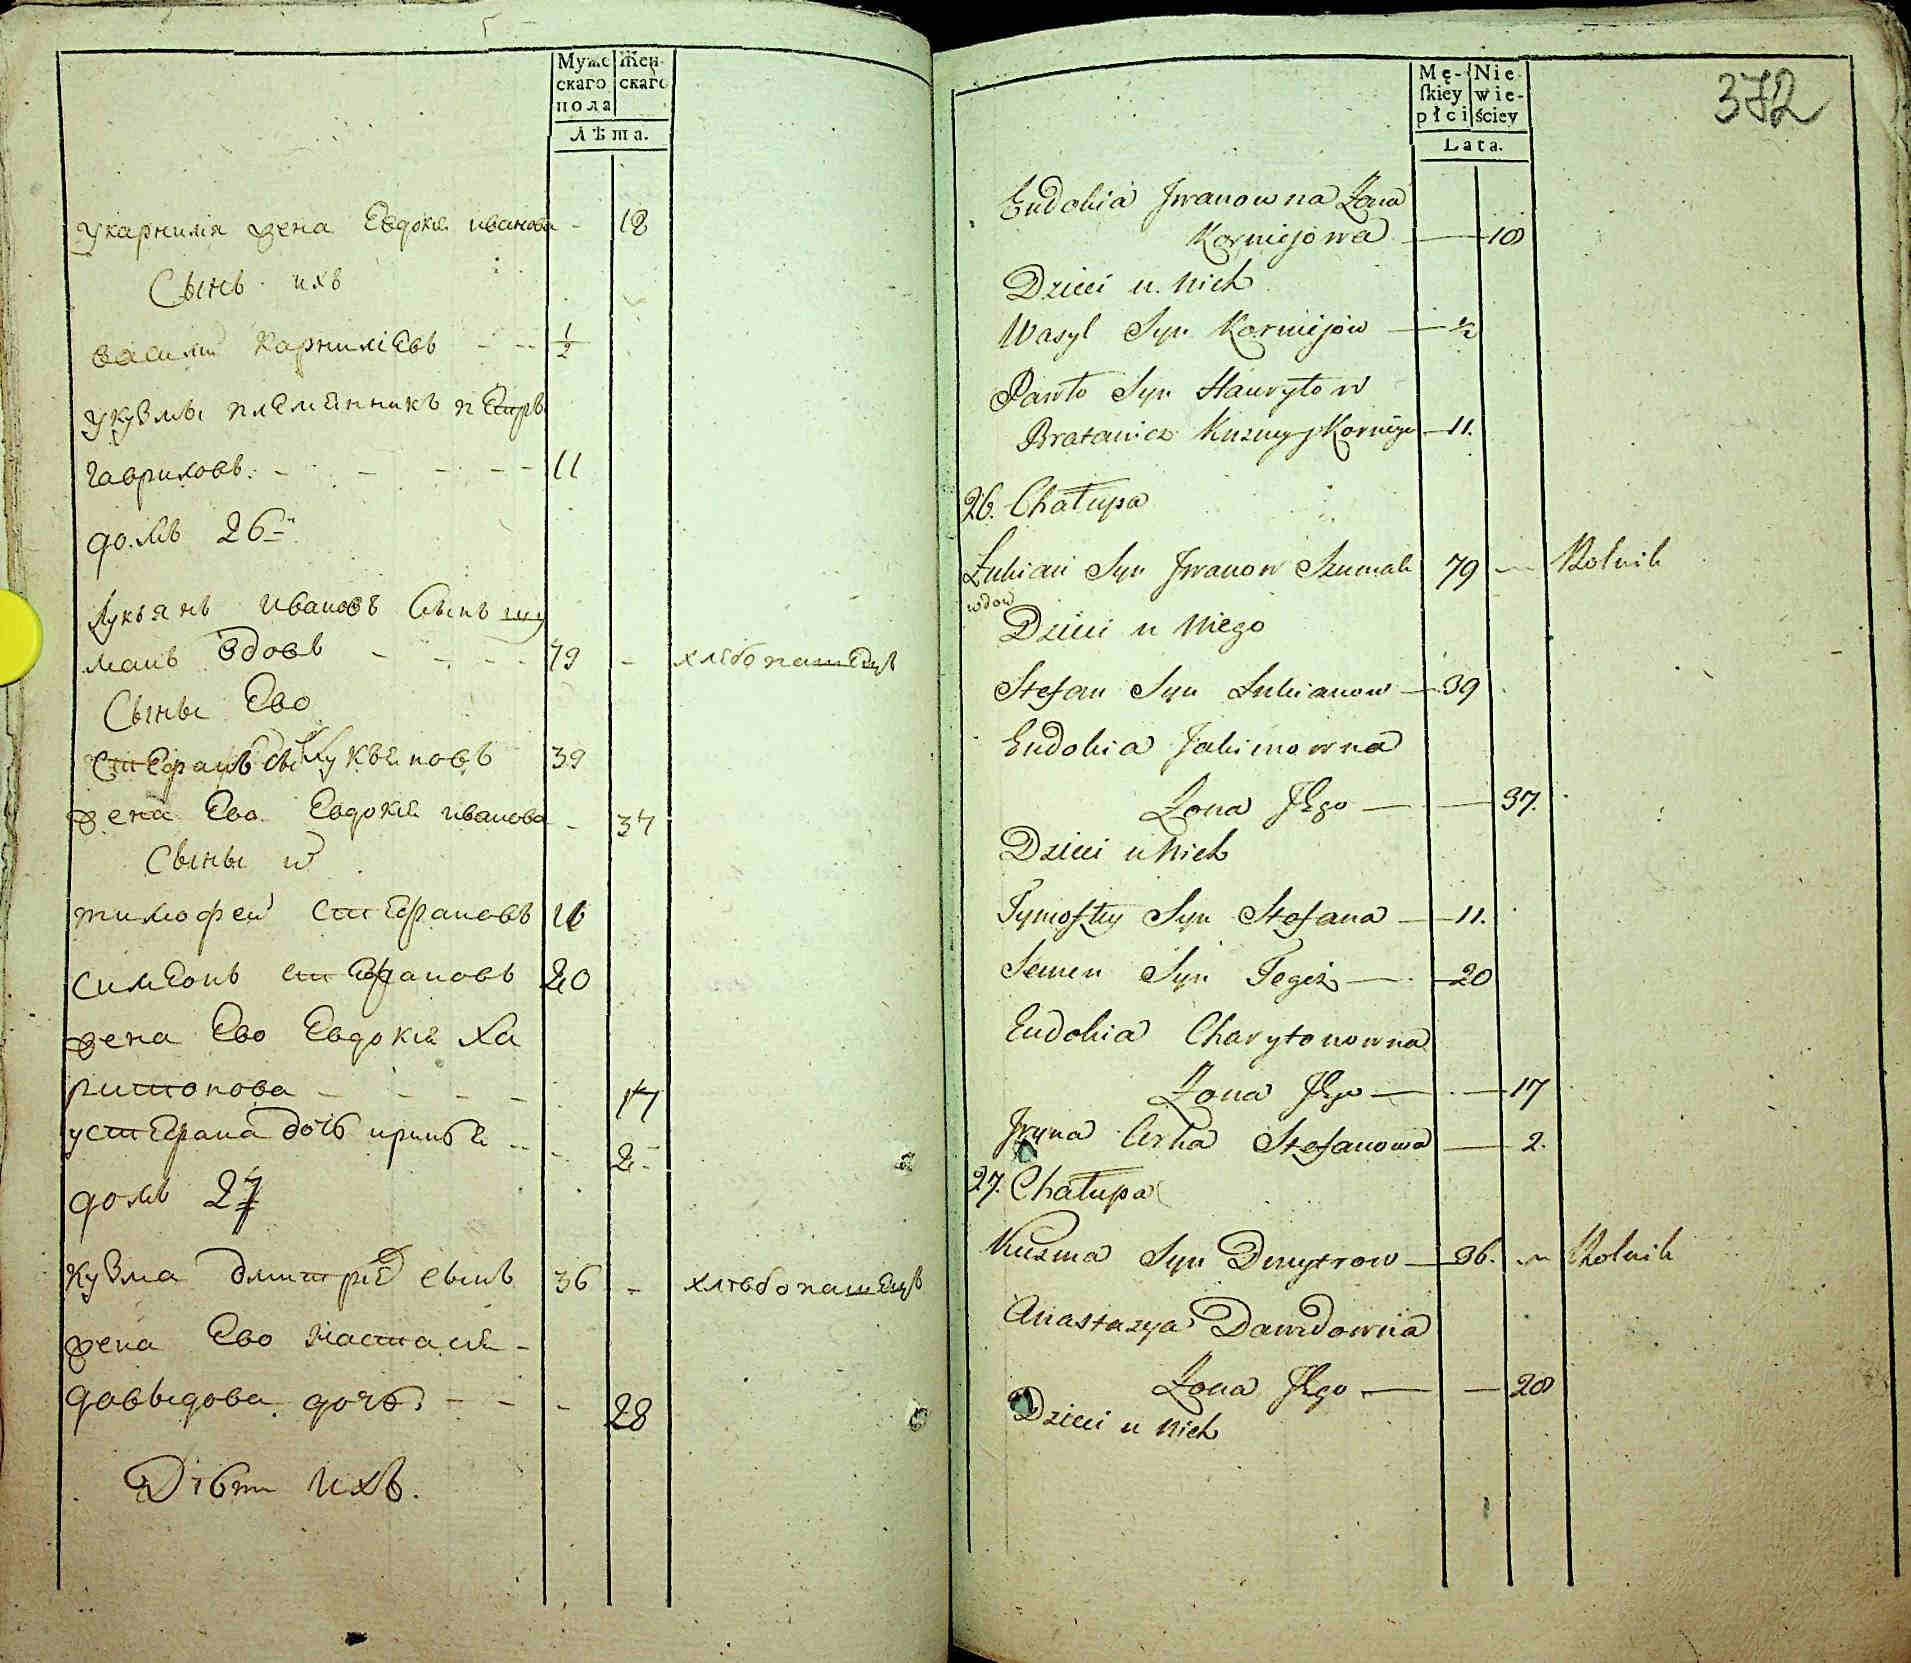 Муже
скаго
пола
Жен
скаго
Лѣта.
укарнилія жена Евдокия иванова - 18
Сынъ ихъ
василий карнилієвъ - -- 1/2
укузмы племенникъ
гавриловъ. - - - - - 11
домъ 26
Лукянъ ивановъ сынъ шу
манъ вдовъ - - - - 79 - хлебопашецъ
Сыны Ево
Стефанъ Лукьяновъ 39
жена Ево Евдокия иванова - 37
Сыны и
тимофей Стефановъ 11
симеонъ стефановъ 20
жена Ево Евдокия Ха
ритонова - - - - - 17
устефана дочь ирина -- - 2 -
домъ 27
Кузма дмитриев сынъ 36 - хлѣбопашецъ
жена Ево настасия -
давыдова дочь. - - - 28
Дѣти ихъ.
372
Mę-
skiey
płci
Nie
wie-
ściey
Lata.
Eudokia Jwanowna Żona
Korniejowa — — 18
Dzieci u Nich
Wasyl Syn Korniejow — ½
Pawło Syn Hawryłow
Bratanicz Kuzmy j Kornieja — 11.
26. Chałupa
Łukian Syn Jwanow Szumak 79 — Rolnik
wdow
Dzieci u Niego
Stefan Syn Łukianow — 39
Eudokia Jakimowna
Żona Jego — — 37.
Dzieci u Nich
Tymofiey Syn Stefana — 11.
Semen Syn Tegoż — 20
Eudokia Charytonowna
Żona Jego — — 17
Jryna Corka Stefanowa — 2.
27. Chałupa
Kuzma Syn Dmytrow — 36. — Rolnik
Anastazya Dawidowna
Żona Jego — — 28
Dzieci u Nich